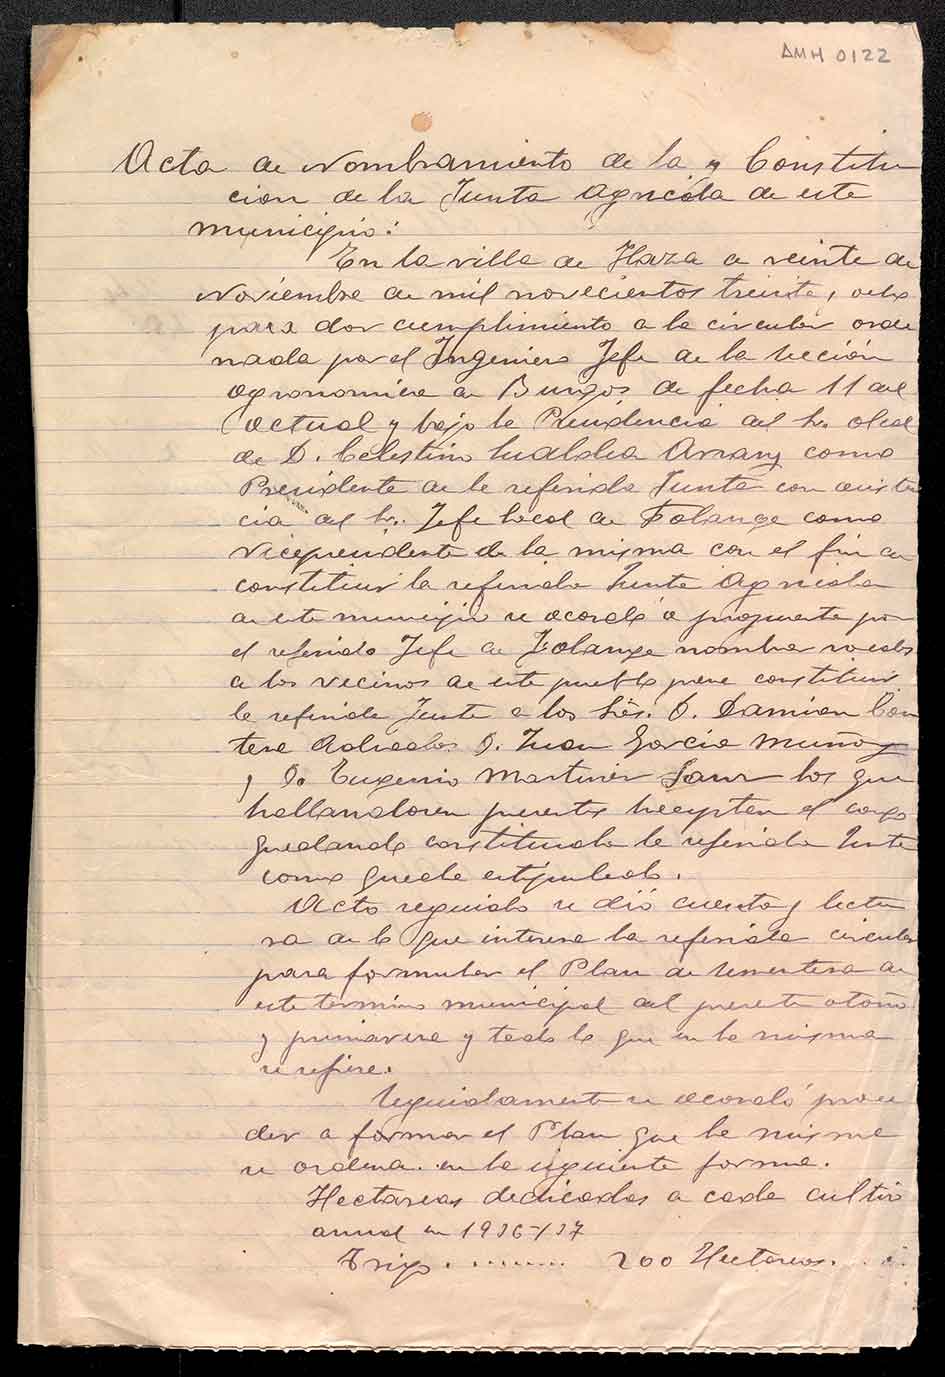 AMH 0122
Acta de Nombramiento de la y Constitu
cion de la Junta Agricola de este
municipio:
En la villa de Haza a veinte de
Noviembre de mil novecientos treinta y ocho
para dar cumplimiento a la circular orde
nada por el Ingeniero Jefe de la Sección
agronomica de Burgos de fecha 11 del
actual y bajo la Presidencia del Sr. Alcal
de D. Celestino Arranz como
Presidente de la referida Junta con asisten
cia del Sr. Jefe local de Falange como
Vicepresidente de la misma con el fin de
constituir la referida Junta Agricola
de este municipio se acordó a propuesta por
el referido Jefe de Falange nombrar vocales
a los vecinos de este pueblo para constituir
la referida Junta a los Srs. D. Damian Con
tera D. Juan Garcia Muñoz
y D. Eugenio Martinez Sanz los que
hallandose presentes aceptan el cargo
quedando constituida la referida Junta
como queda estipulado.
Acto seguido se dió cuenta y lectu
ra de lo que interesa la referida circular
para formular el Plan de sementera de
este termino municipal del presente otoño
y primavera y todo lo que en la misma
se refiere.
Seguidamente se acordó proce
der a formar el Plan que la misma
se ordena en la siguiente forma.
Hectareas dedicadas a cada cultivo
anual en 1936-137
Trigo ......... 200 Hectareas.